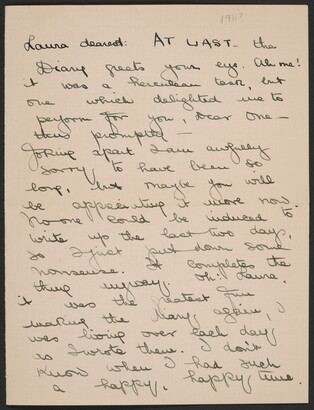 1911?
Laura dearest: AT LAST - the
Diary greets your eye. Ah me!
it was a herculean task, but
one which delighted me to
perform for you, Dear One -
thus prompted -
Joking apart I am awfully
sorry to have been so
long, but maybe you will
be appreciating it more now.
No one could be induced to
write up the last two days,
so I just put down some
nonsense. It completes the
thing anyway. Oh: Laura,
it was the greatest fun
making the Diary again, I
was living over each day
as I wrote them. I don't
know when I had such
a happy, happy time.